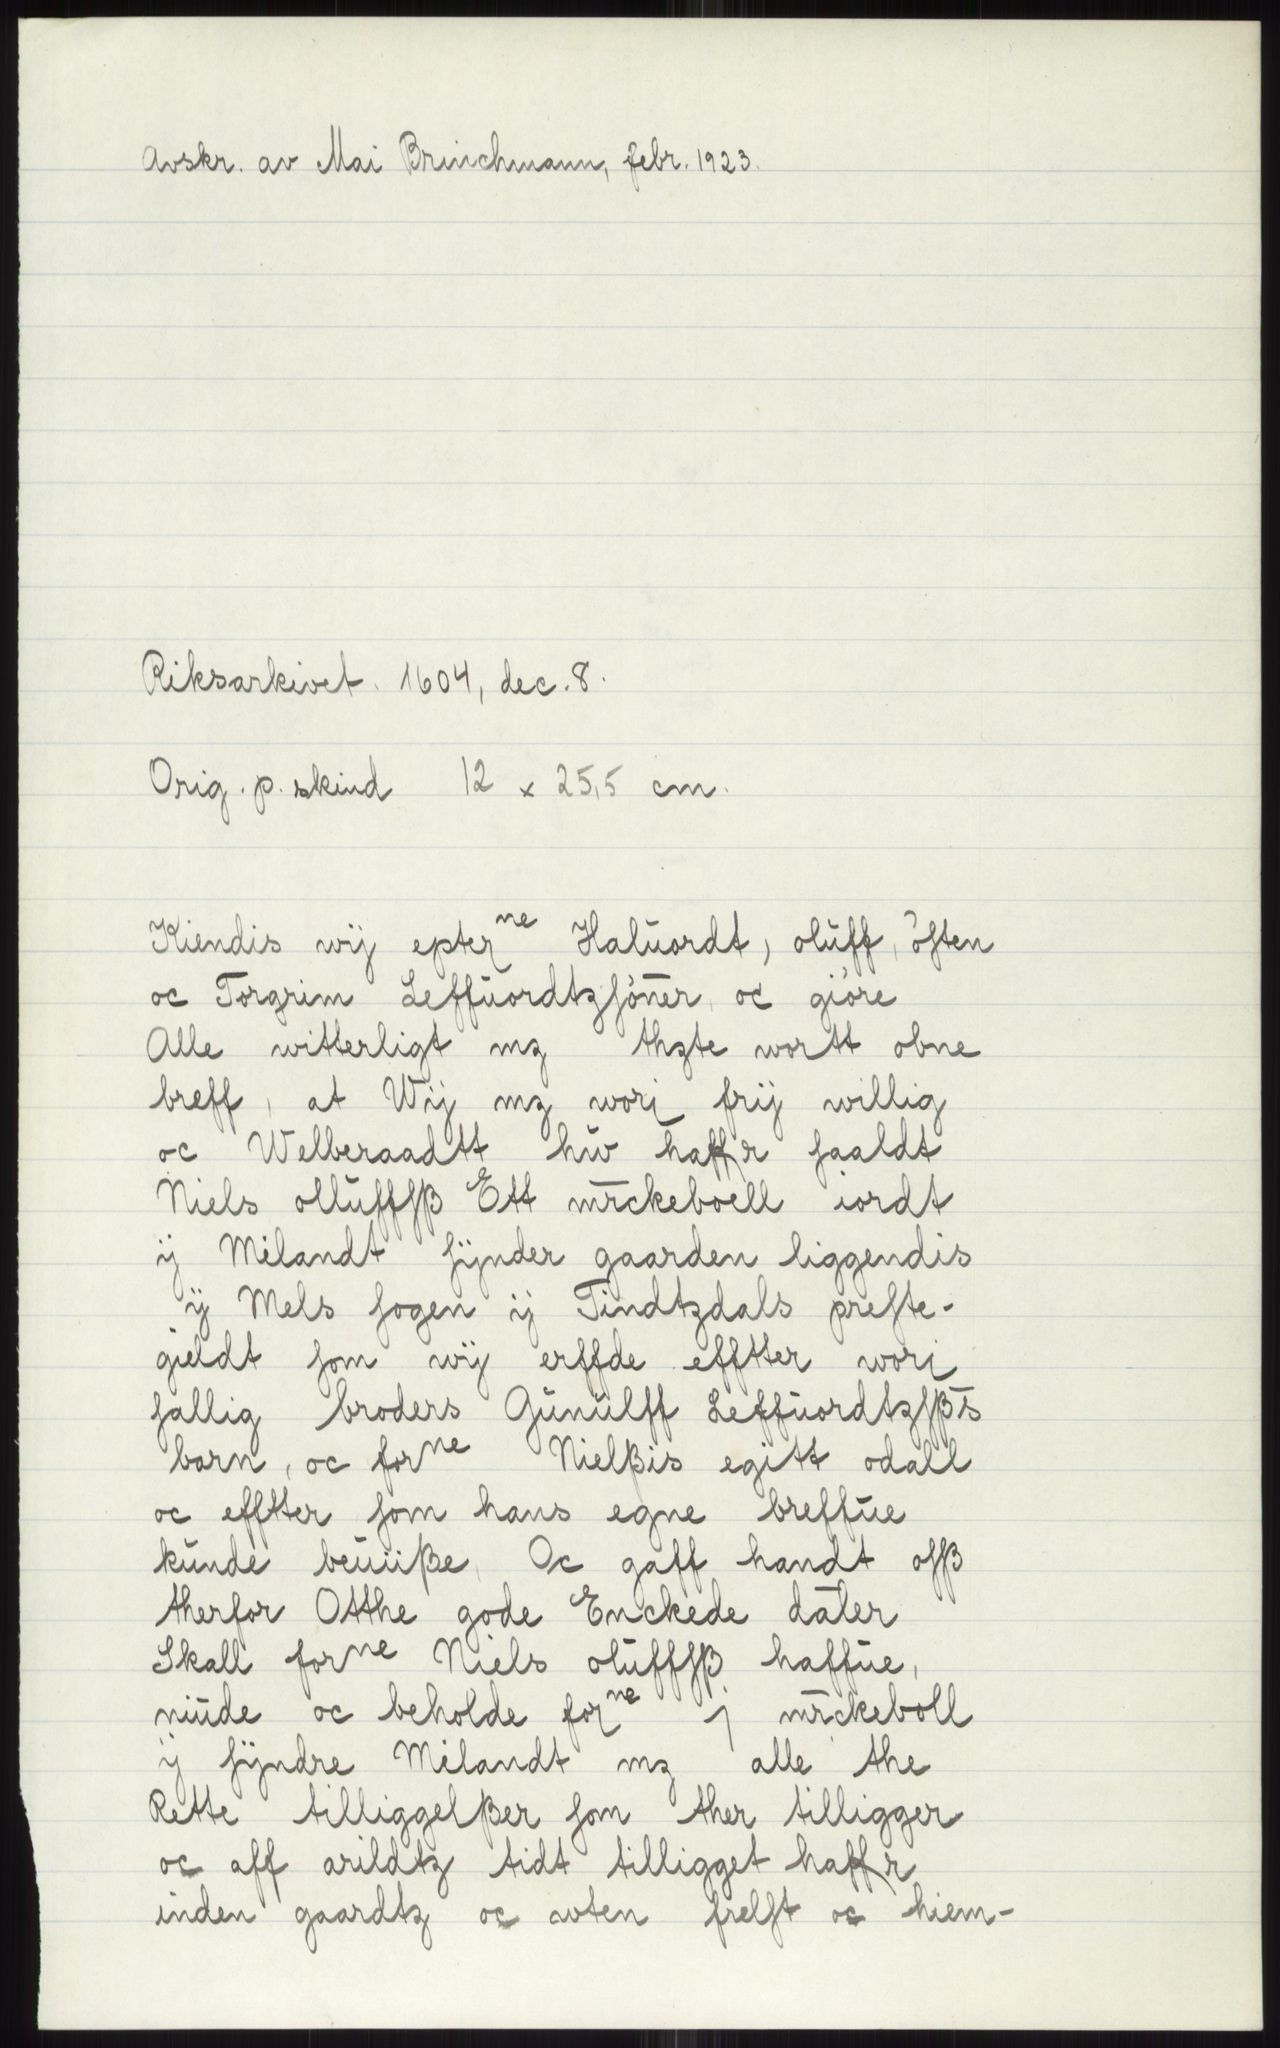 Avskr. av Mai Brinchmann, febr. 1923.
Riksarkivet. 1604, dec. 8.
Orig. p. skind 12 x 25,5 cm.
Kiendis wij epterne Haluordt, oluff, østen
oc Torgrim Leffuordtzsøner, oc giøre
Alle witterligt mz thzte wortt obne
breff, at Wij mz wori frij willig
oc Welberaadtt hw haffr saaldt
Niels olluffsß Ett mrckeboell iordt
ij Milandt sÿnder gaarden liggendis
ij Mels sogen ij Tindtzdals preste-
gieldt som wij erffde efftter wori
sallig broders Gunulff Leffuordtzsßs
barn, oc forne Nielßis egitt odall
oc efftter som hans egne breffue
kunde beuiiße, Oc gaff handt osß
therfor Otthe gode Enckede daler
Skall forne Niels oluffsß haffue,
niude oc beholde forne j mrckeboll
ij sÿndre Milandt mz alle the
Rette tilliggelßer som ther tilligger
oc aff arildtz tidt tilligget haffr
inden gaardtz oc wten frelst oc hiem-